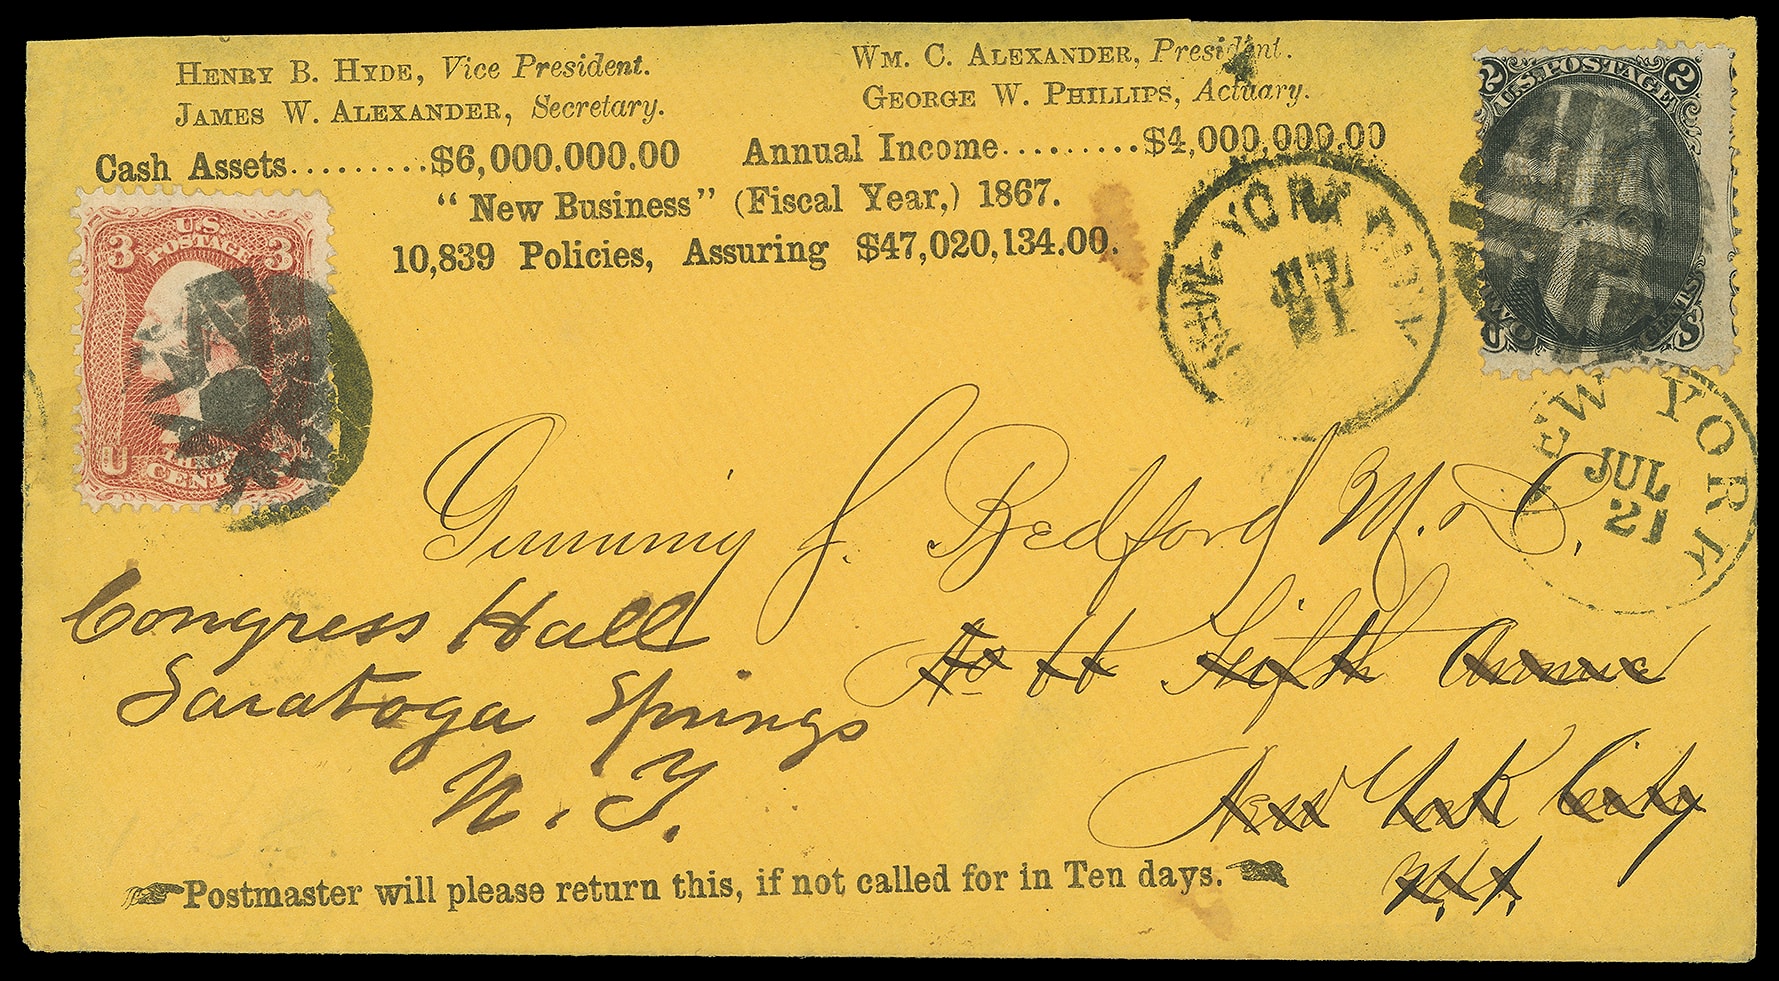 HENRY B. HYDE, Vice President.
WM. C. ALEXANDER, President.
JAMES W. ALEXANDER, Secretary.
GEORGE W. PHILLIPS, Actuary.
Cash Assets.........$6,000.000.00
Annual Income.........$4,000,000.00
"New Business" (Fiscal Year,) 1867.
10,839 Policies, Assuring $47,020,134.00.
3 U.S. POSTAGE 3
U
CENTS
2 U.S. POSTAGE 2
TWO CENTS
U S
NEW-YORK CITY
JUL
21
NEW YORK
JUL
21
Gunning J. Bedford M.D.
No 66 Fifth Avenue
New York City
N.Y.
Congress Hall
Saratoga Springs
N.Y.
Postmaster will please return this, if not called for in Ten days.